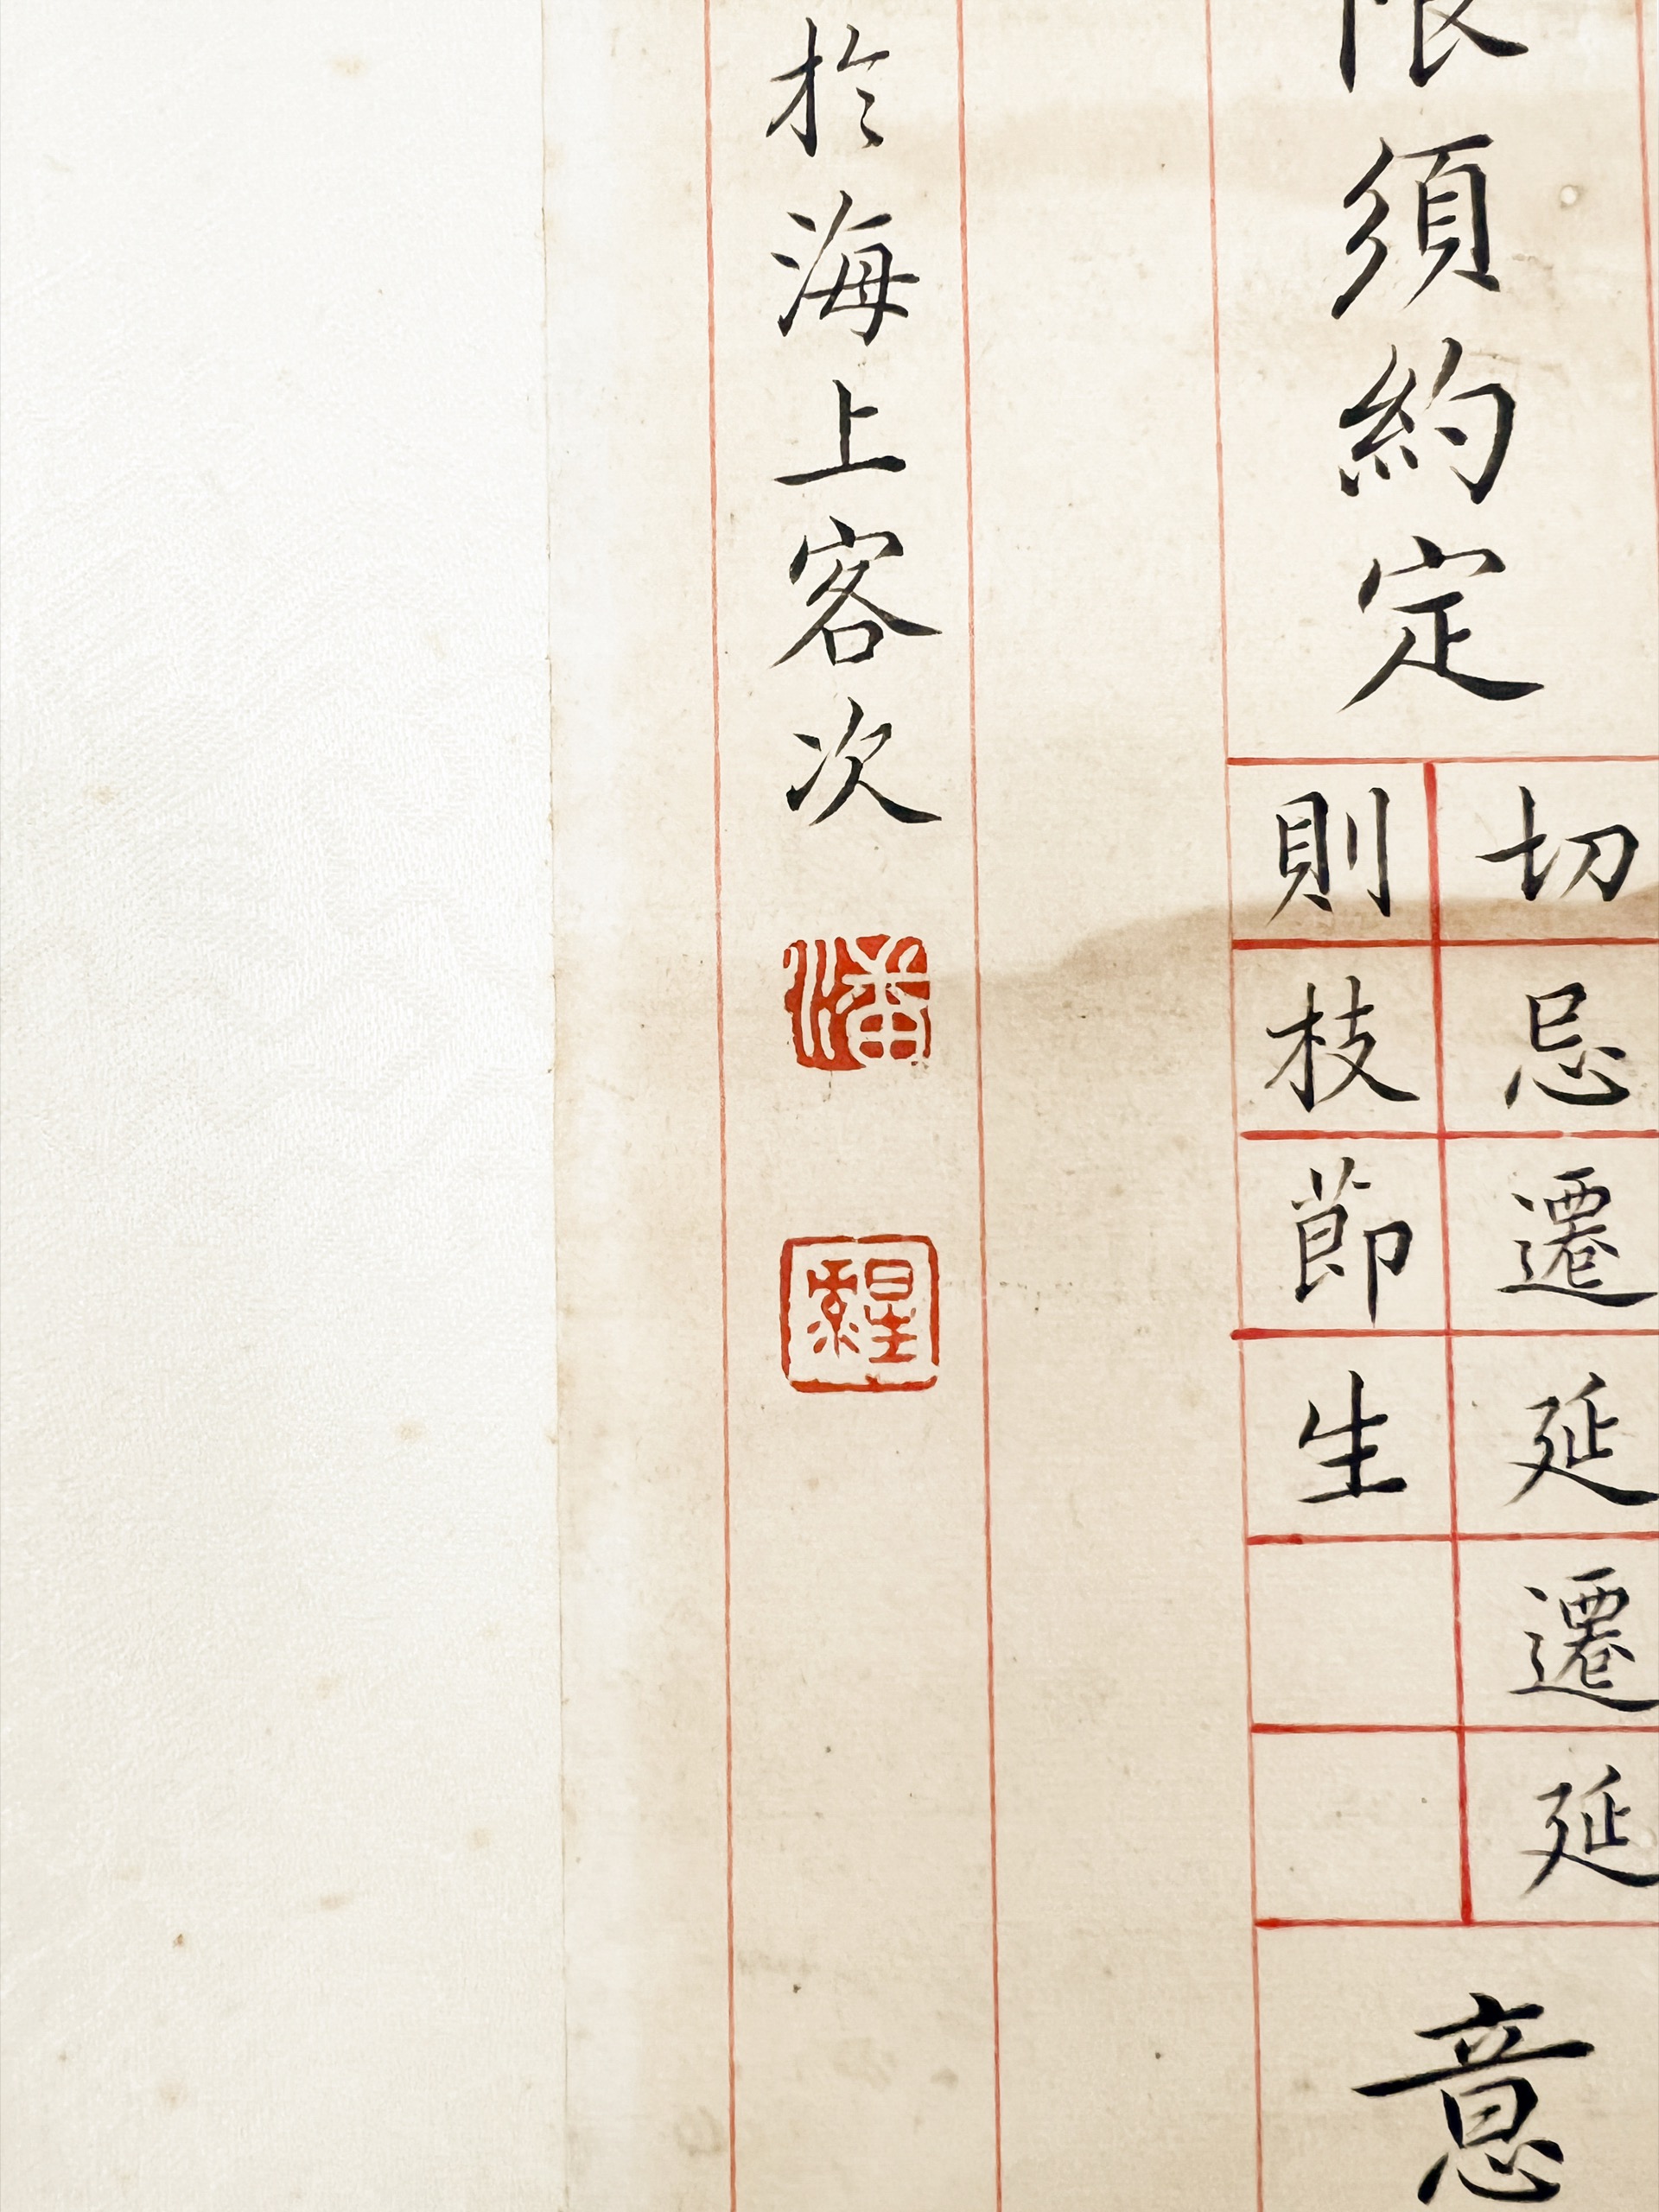 須約定
切忌遷延遷延
則枝節生
意
於海上客次
潘